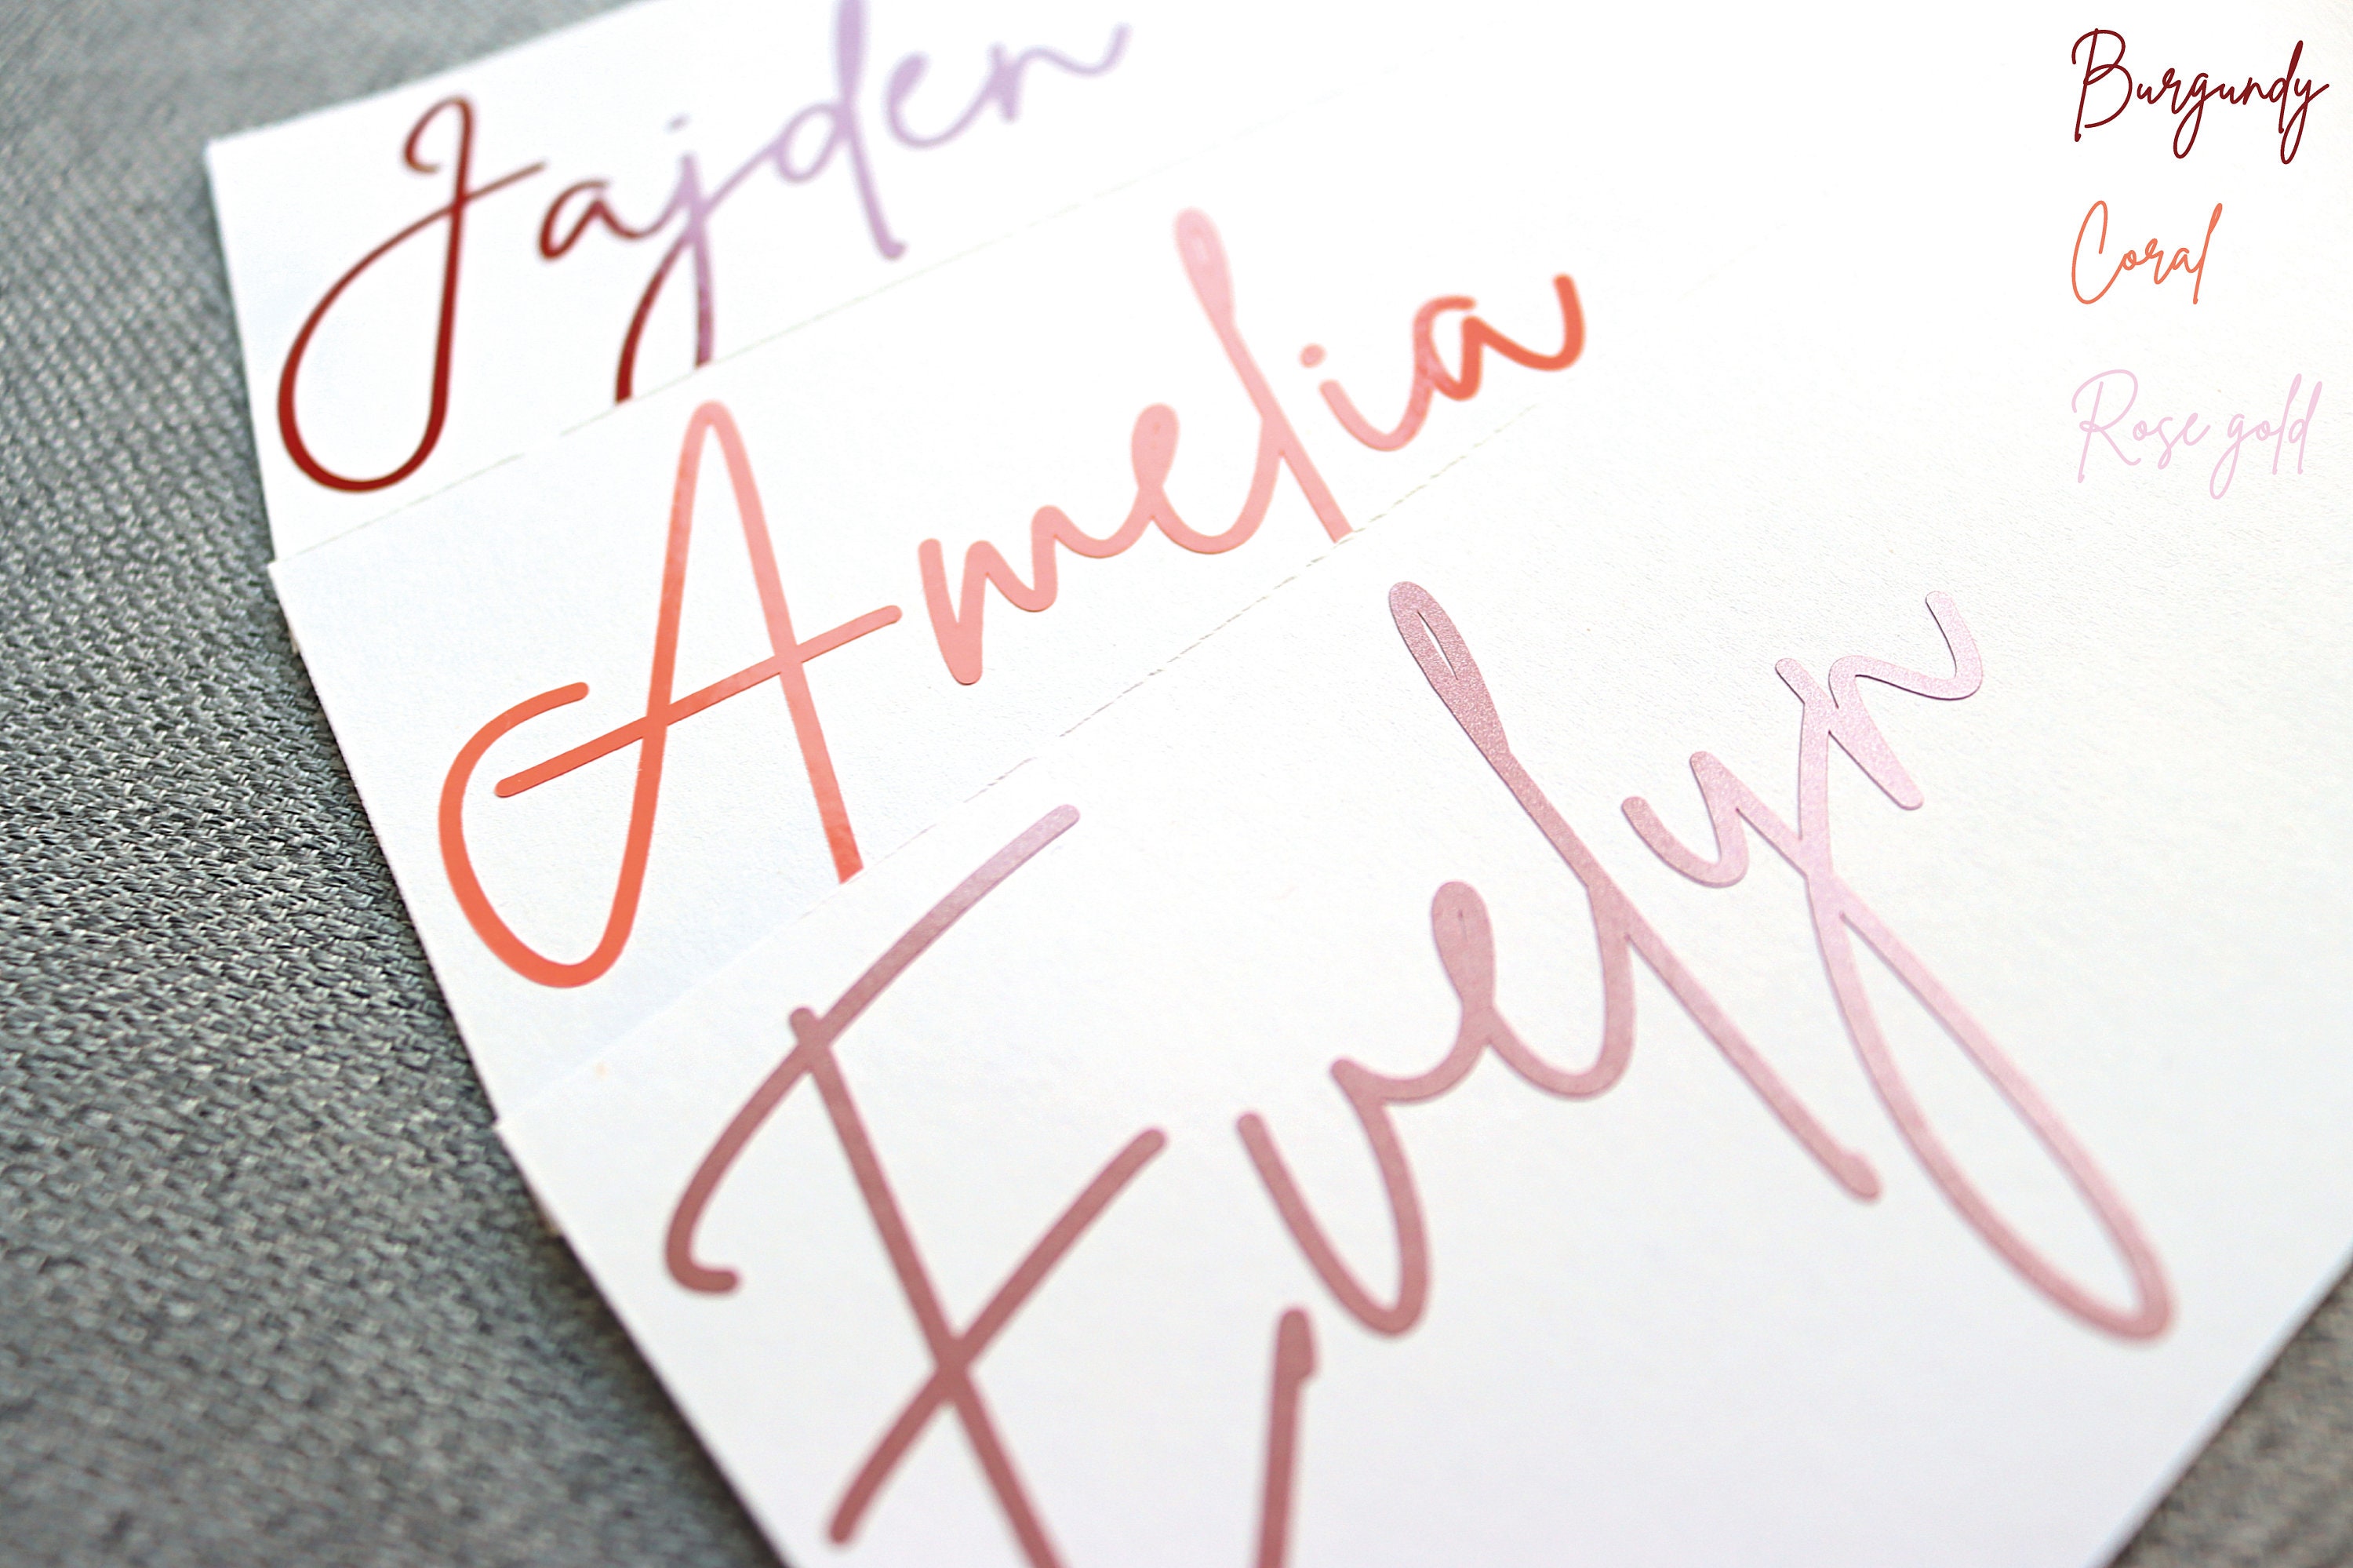 Jajden
Amelia
Evelyn
Burgundy
Coral
Rose gold